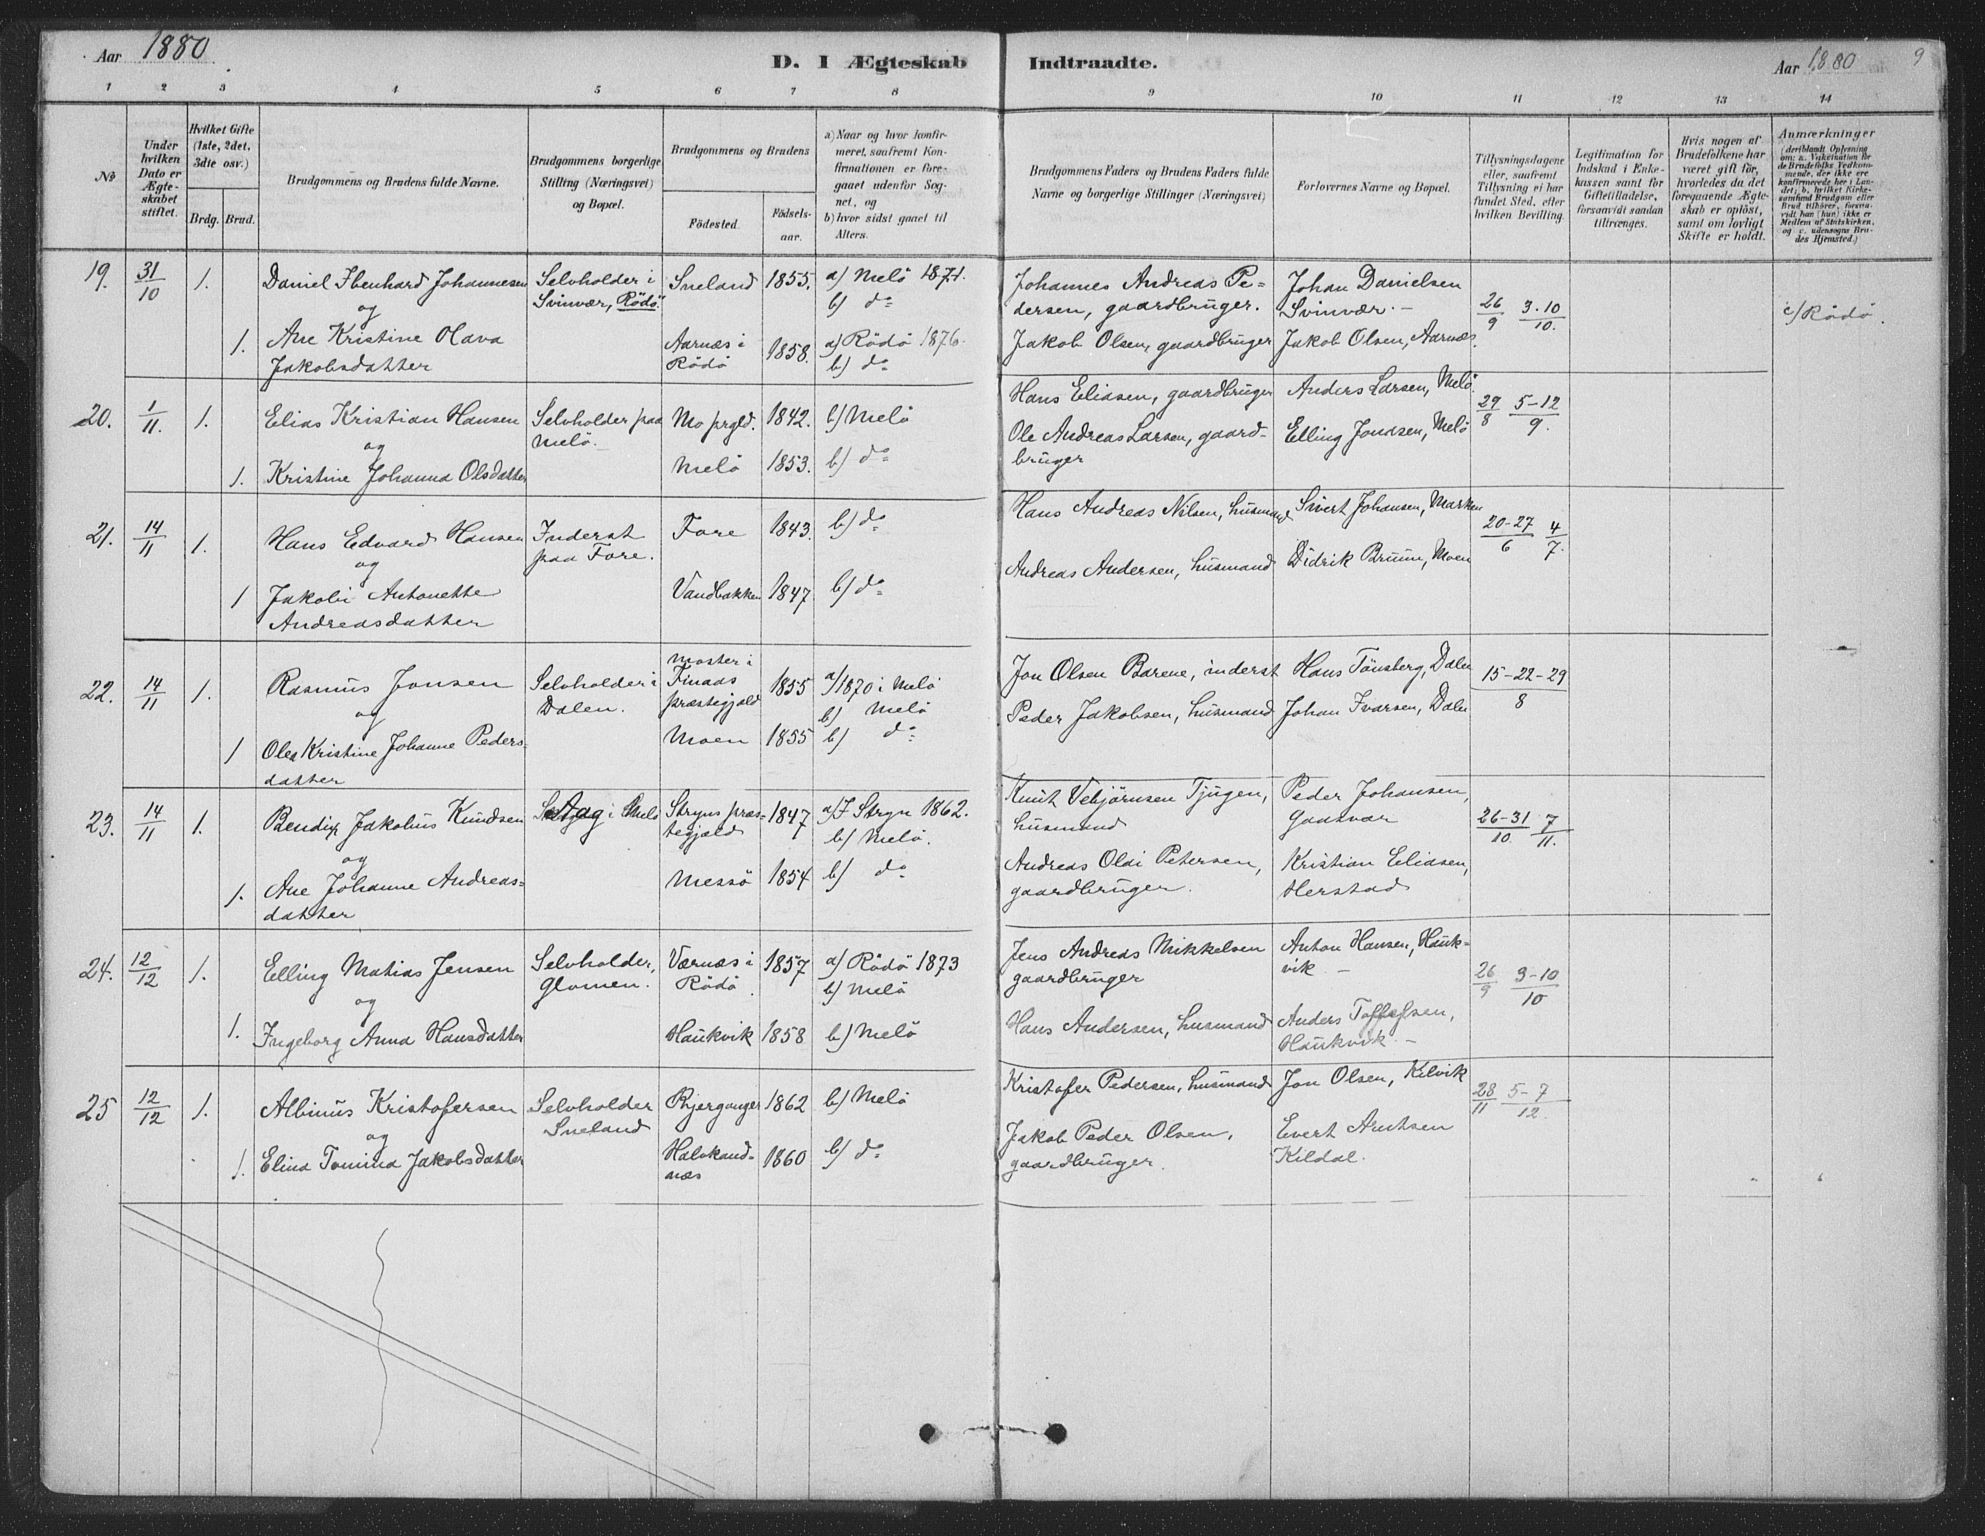 Aar 1880
D. I Ægteskab Indtraadte.
Aar 1880 9
1 2 3 4 5 6 7 8 9 10 11 12 13 14
No
Under hvilken Dato er Ægteskabet stiftet.
Hvilket Gifte (1ste, 2det, 3die osv.)
Brdg. Brud.
Brudgommens og Brudens fulde Navne.
Brudgommens borgerlige Stilling (Næringsvei) og Bopæl.
Brudgommens og Brudens
Fødested.
Fødselsaar.
a) Naar og hvor konfirmeret, saafremt Konfirmationen er foregaaet udenfor Sognet, og
b) hvor sidst gaaet til Alters.
Brudgommens Faders og Brudens Faders fulde Navne og borgerlige Stillinger (Næringsvei)
Forlovernes Navne og Bopæl.
Tillysningsdagene eller, saafremt Tillysning ei har fundet Sted, efter hvilken Bevilling.
Legitimation for Indskud i Enkekassen samt for Giftetilladelse, forsaavidt saadan tiltrænges.
Hvis nogen af Brudefolkene har været gift før, hvorledes da det foregaaende Ægteskab er opløst, samt om lovligt Skifte er holdt.
Anmærkninger
19. 31/10 1. Daniel Ibenhard Johannesen
og
1. Ane Kristine Hava
Jakobsdatter
Selvholder i
Svinvær, Rödö
Sneland 1855. a) Melö 1871.
b) do
Aarnæs i
Rödö 1858. a) Rödö 1876.
b) do
Johannes Andreas Pedersen, gaardbruger.
Jakob Olsen, gaardbruger
Johan Danielsen
Svinvær. –
Jakob Olsen, Aarnæs.
26/9 3-10/10.
c/ Rödö.
20. 1/11. 1. Elias Kristian Hansen
og
1. Kristine Johanna Olsdatter
Selvholder paa
Melö.
Mo prgld. 1842. b) Melö
Melö 1853. b) do
Hans Eliasen, gaardbruger
Ole Andreas Larsen, gaardbruger
Anders Larsen, Melö.
Elling Jonasen, Melö
29/8 5-12/9.
21. 14/11 1. Hans Edvard Hansen
og
1 Jakobi Antonette
Andreasdatter
Inderst
paa Fore.
Fore 1843. b) do
Vandbakken 1847 b) do
Hans Andreas Nilsen, husmand
Andreas Andersen, husmand
Sivert Johansen, Marken
Didrik Bruun, Moen
20-27/6 4/7.
22. 14/11 1. Rasmus Jonsen
og
1 Olea Kristine Johanne Pedersdatter
Selvholder i
Dalen.
Moster i
Finaas
præstegjæld 1855 a) 1870 i Melö
b) Melö
Moen 1855 b) do
Jon Olsen Barene, inderst
Peder Jakobsen, husmand
Hans Tönsberg, Dalen
Johan Ivarsen, Dalen
15-22-29/8
23. 14/11 1. Bendix Jakobus Knudsen
og
1. Ane Johanne Andreasdatter
i Melö
Stryns præstegjæld 1847 a) I Stryn 1862.
b) Melö.
Messö 1854 b) do
Knut Vebjörnsen Tjugen,
husmand
Andreas Oldi Petersen,
gaardbruger.
Peder Johansen,
Gaasvær
Kristian Eliasen,
Herstad
26-31/10 7/11.
24. 12/12 1. Elling Matias Jensen
og
1. Ingeborg Anna Hansdatter
Selvholder,
Glomen.
Værnæs i
Rödö 1857 a) Rödö 1873
b) Melö
Haukvik 1858 b) Melö
Jens Andreas Mikkelsen
gaardbruger
Hans Andersen, husmand
Anton Hansen, Haukvik –
Anders Toffefsen,
Haukvik –
26/9 3-10/10
25 12/12 1. Albinus Kristofersen
og
1. Elina Tomina Jakobsdatter
Selvholder
Sneland
Bjerganger 1862 b) Melö
Halvkandnæs 1860 b) do
Kristofer Pedersen, husmand
Jakob Peder Olsen,
gaardbruger.
Jon Olsen, Kilvik
Evert Arntsen
Kildal.
28/11 5-7/12.